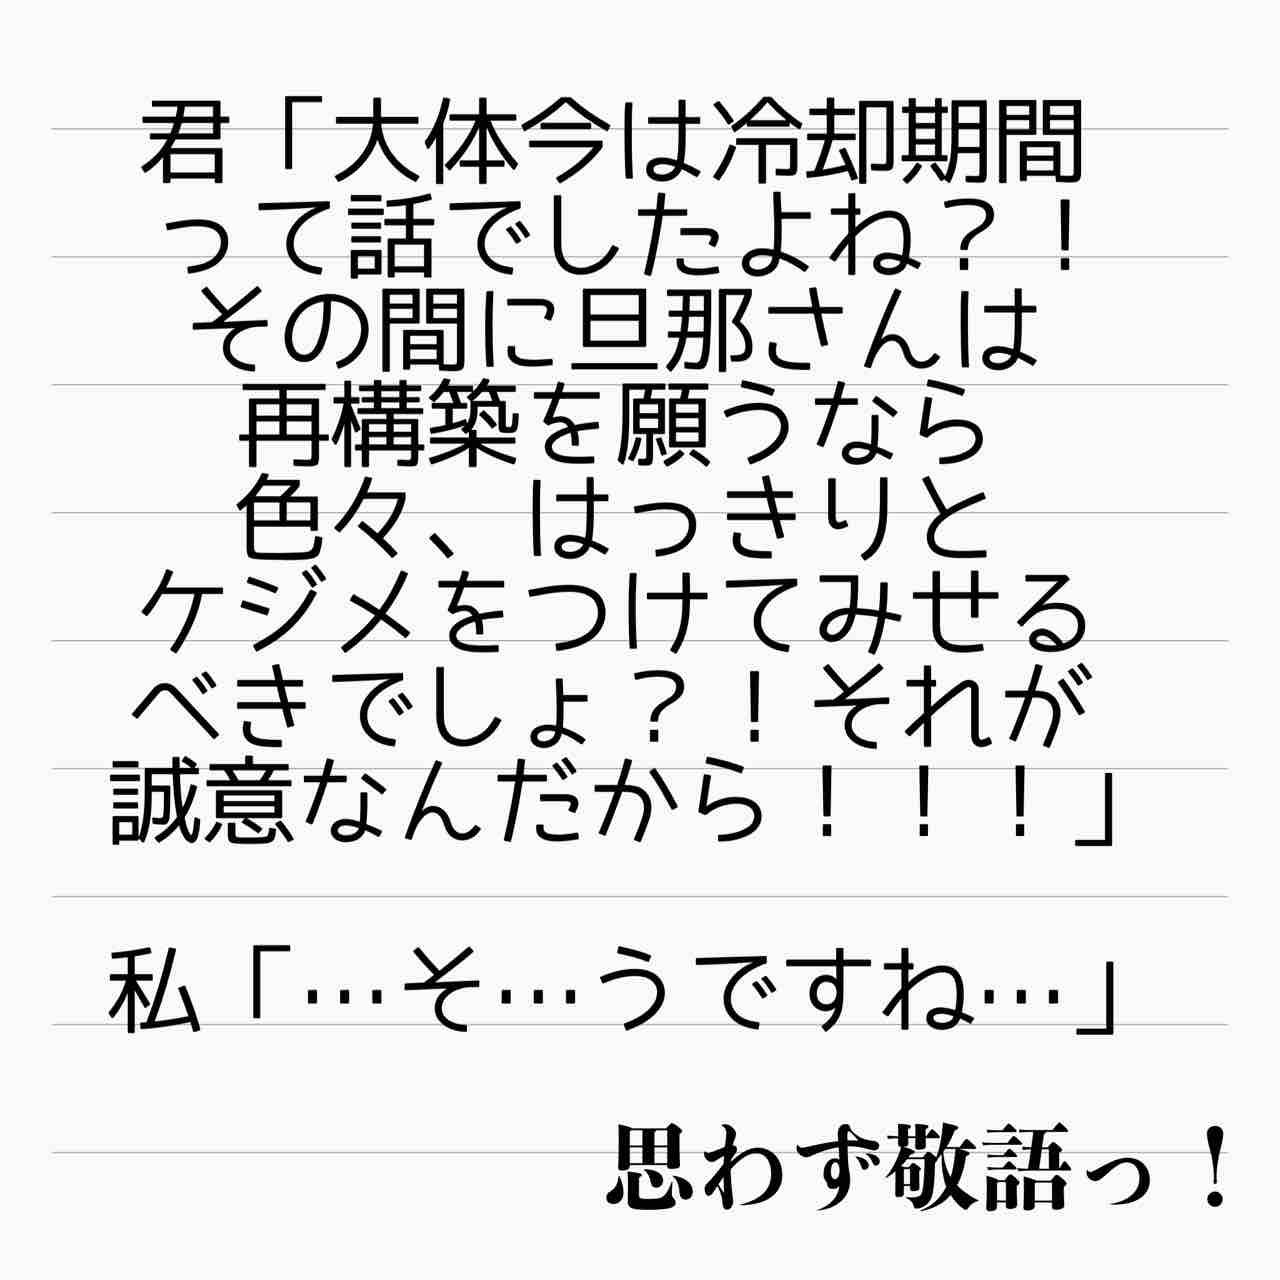 君「大体今は冷却期間
って話でしたよね？！
その間に旦那さんは
再構築を願うなら
色々、はっきりと
ケジメをつけてみせる
べきでしょ？！それが
誠意なんだから！！！」
私「…そ…うですね…」
思わず敬語っ！